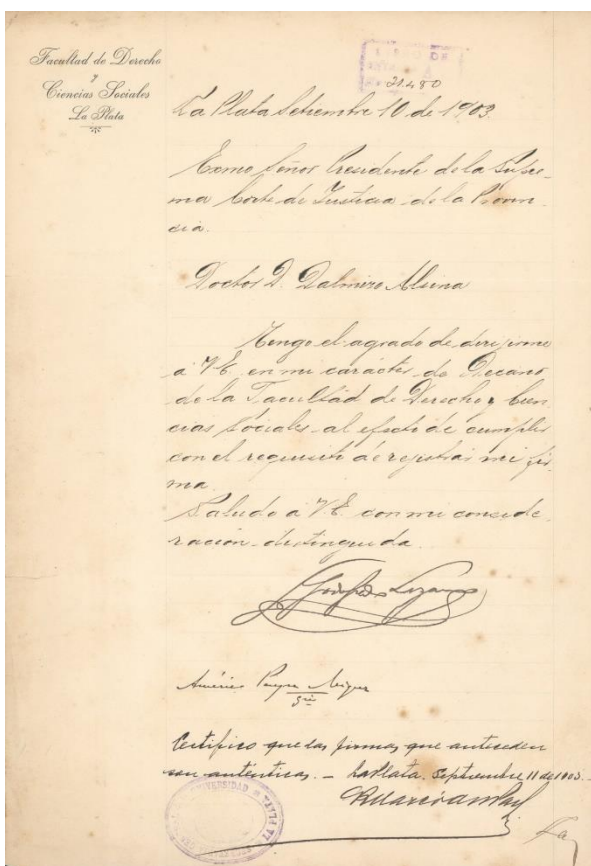 Facultad de Derecho
y
Ciencias Sociales
La Plata
21.480
La Plata Setiembre 10 de 1903.
Exmo Señor Presidente de la Supre-
ma Corte de Justicia de la Provin-
cia.
Doctor D. Dalmiro Alsina
Tengo el agrado de dirijirme
á V.E. en mi carácter de Decano
de la Facultad de Derecho y Cien-
cias Sociales al efecto de cumplir
con el requisito de rejistrar mi fir-
ma.
Saludo á V.E. con mi conside-
racion distinguida.
Lozano
Certifico que las firmas que anteceden
son auténticas. — La Plata, Septiembre 11 de 1903. -
UNIVERSIDAD LA PLATA